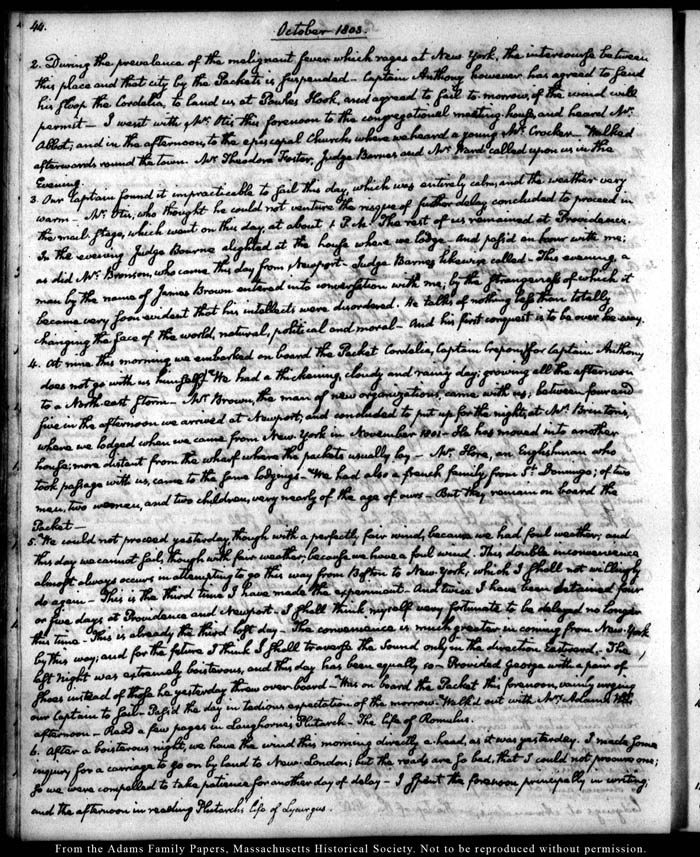 44.
October 1803.
2. During the prevalence of the malignant fever which rages at New York, the intercourse between
this place and that city by the Packets is suspended — Captain Anthony however has agreed to send
his sloop the Cordelia, to land us at Powles Hook, and agreed to sail to-morrow, if the wind will
permit — I went with Mr. Otis this forenoon to the congregational meeting-house, and heard Mr.
Abbot; and in the afternoon, to the episcopal Church, where we heard a young Mr. Crocker — Walked
afterwards round the town. Mr. Theodore Foster, Judge Barnes and Mr. Ward called upon us in the
Evening.
3. Our Captain found it impracticable to sail this day, which was entirely calm, and the weather very
warm — Mr. Otis, who thought he could not venture the risque of further delay concluded to proceed in
the mail-stage, which went on this day, at about 1 P.M. The rest of us remained at Providence.
In the evening Judge Bourne alighted at the house where we lodge — And pass'd an hour with me;
as did Mr. Bronson, who came this day from Newport — Judge Barnes likewise called — This evening, a
man by the name of James Brown entered into conversation with me; by the strangeness of which it
became very soon evident that his intellects were disordered. He talks of nothing less than totally
changing the face of the world, natural, political and moral — And his first conquest is to be over the sea.
4. At nine this morning we embarked on board the Packet Cordelia, Captain Crepon, (for Captain Anthony
does not go with us himself.) We had a thickening, cloudy and rainy day; growing all the afternoon
to a North-east storm — Mr. Brown, the man of new organizations, came with us; between four and
five in the afternoon we arrived at Newport; and concluded to put up for the night, at Mrs. Brenton's,
where we lodged when we came from New York in November 1801 — She has moved into another
house; more distant from the wharf where the packets usually lay — Mr. Hore, an Englishman who
took passage with us, came to the same lodgings — We had also a french family, from St. Domingo; of two
men, two women, and two children, very nearly of the age of ours — But they remain on board the
Packet —
5. We could not proceed yesterday, though with a perfectly fair wind, because we had foul weather; and
this day we cannot sail, though with fair weather, because we have a foul wind. This double inconvenience
almost always occurs in attempting to go this way from Boston to New-York; which I shall not willingly
do again — This is the third time I have made the experiment — And twice I have been detained four
or five days at Providence and Newport — I shall think myself very fortunate to be delayed no longer
this time — This is already the third lost day — The convenience is much greater in coming from New-York
by this way; and for the future I think I shall traverse the Sound only in the direction Eastward. The
last night was extremely boisterous, and this day has been equally so — Provided George with a pair of
shoes instead of those he yesterday threw overboard — Was on board the Packet this forenoon, vainly urging
our Captain to sail — Pass'd the day in tedious expectation of the morrow. Walk'd out with Mrs. Adams this
afternoon — Read a few pages in Langhorne's Plutarch — The life of Romulus.
6. After a boisterous night, we have the wind this morning directly a-head, as it was yesterday. I made some
inquiry for a carriage to go on by land to New-London; but the roads are so bad, that I could not procure one;
so we were compelled to take patience for another day of delay — I spent the forenoon principally in writing;
and the afternoon in reading Plutarch's life of Lycurgus.
From the Adams Family Papers, Massachusetts Historical Society. Not to be reproduced without permission.